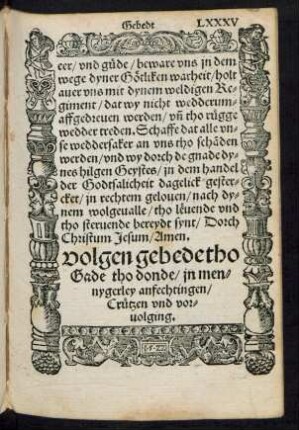 Gebedt LXXXV
eer/ vnd güde/ beware vns jn dem
wege dyner Götliken warheit/ holt
auer vns mit dynem weldigen Re-
giment/ dat wy nicht wedderum-
affgedreuen werden/ vn̄ tho rügge
wedder treden. Schaffe dat alle vn-
se weddersaker an vns tho schāden
werden/ vnd wy dorch de gnade dy-
nes hilgen Geystes/ jn dem handel
der Godtsalicheit dagelick gester-
cket/ jn rechtem gelouen/ nach dy-
nem wolgeualle/ tho leuende vnd
tho steruende bereydt synt/ Dorch
Christum Jesum/ Amen.
Volgen gebede tho
Gade tho donde/ jn men-
nygerley anfechtingen/
Crützen vnd vor-
uolging.